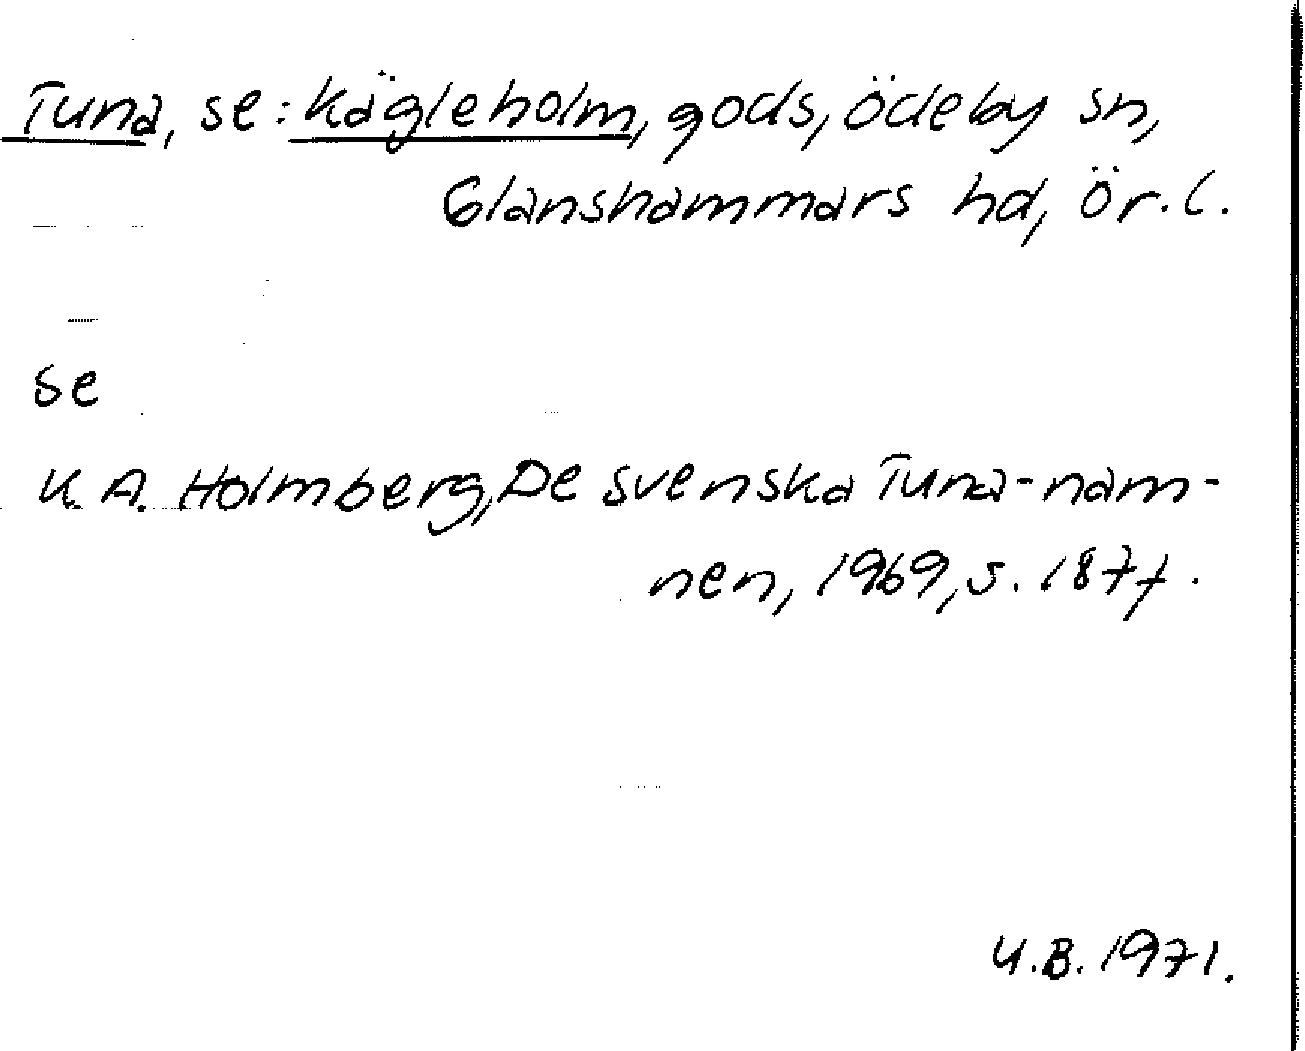 Tuna, se: Kägleholm, gods, Ödeby sn,
Glanshammars hd, Ör. l.
se
K. A. Holmberg, De svenska Tuna-nam-
nen, 1969, s. 187f.
U.B. 1971.